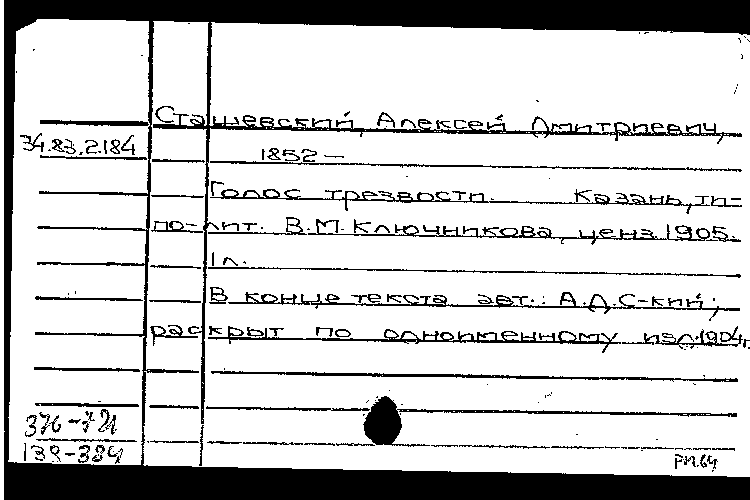 Сташевский, Алексей Дмитриевич,
34.83.2.184
1852 —
Голос трезвости. Казань, ти-
по-лит. В.М. Ключникова, ценз. 1905.
1 л.
В конце текста авт.: А.Д.С-кий;
раскрыт по одноименному изд. 1904 г.
138-384
РП.64